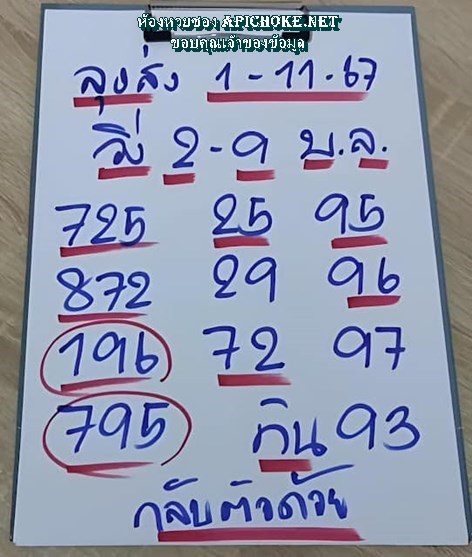 ห้องหวยซอง APICHOKE.NET
ขอบคุณเจ้าของข้อมูล
ลุงส่ง 1-11-67
วิ่ง 2-9 บ.ล.
725 25 95
872 29 96
196 72 97
795 กิน 93
กลับตัวด้วย